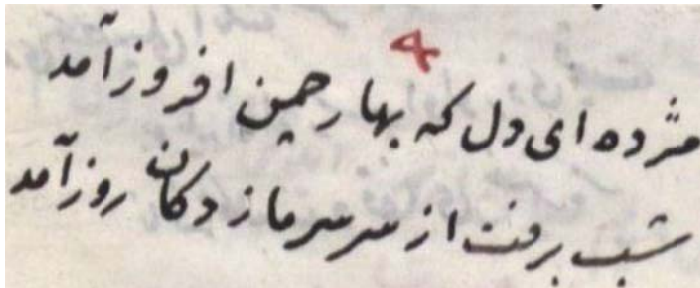 ۴
مژده ای دل که بهار چمن افروز آمد
شب برفت از سر سرما زد کان روز آمد